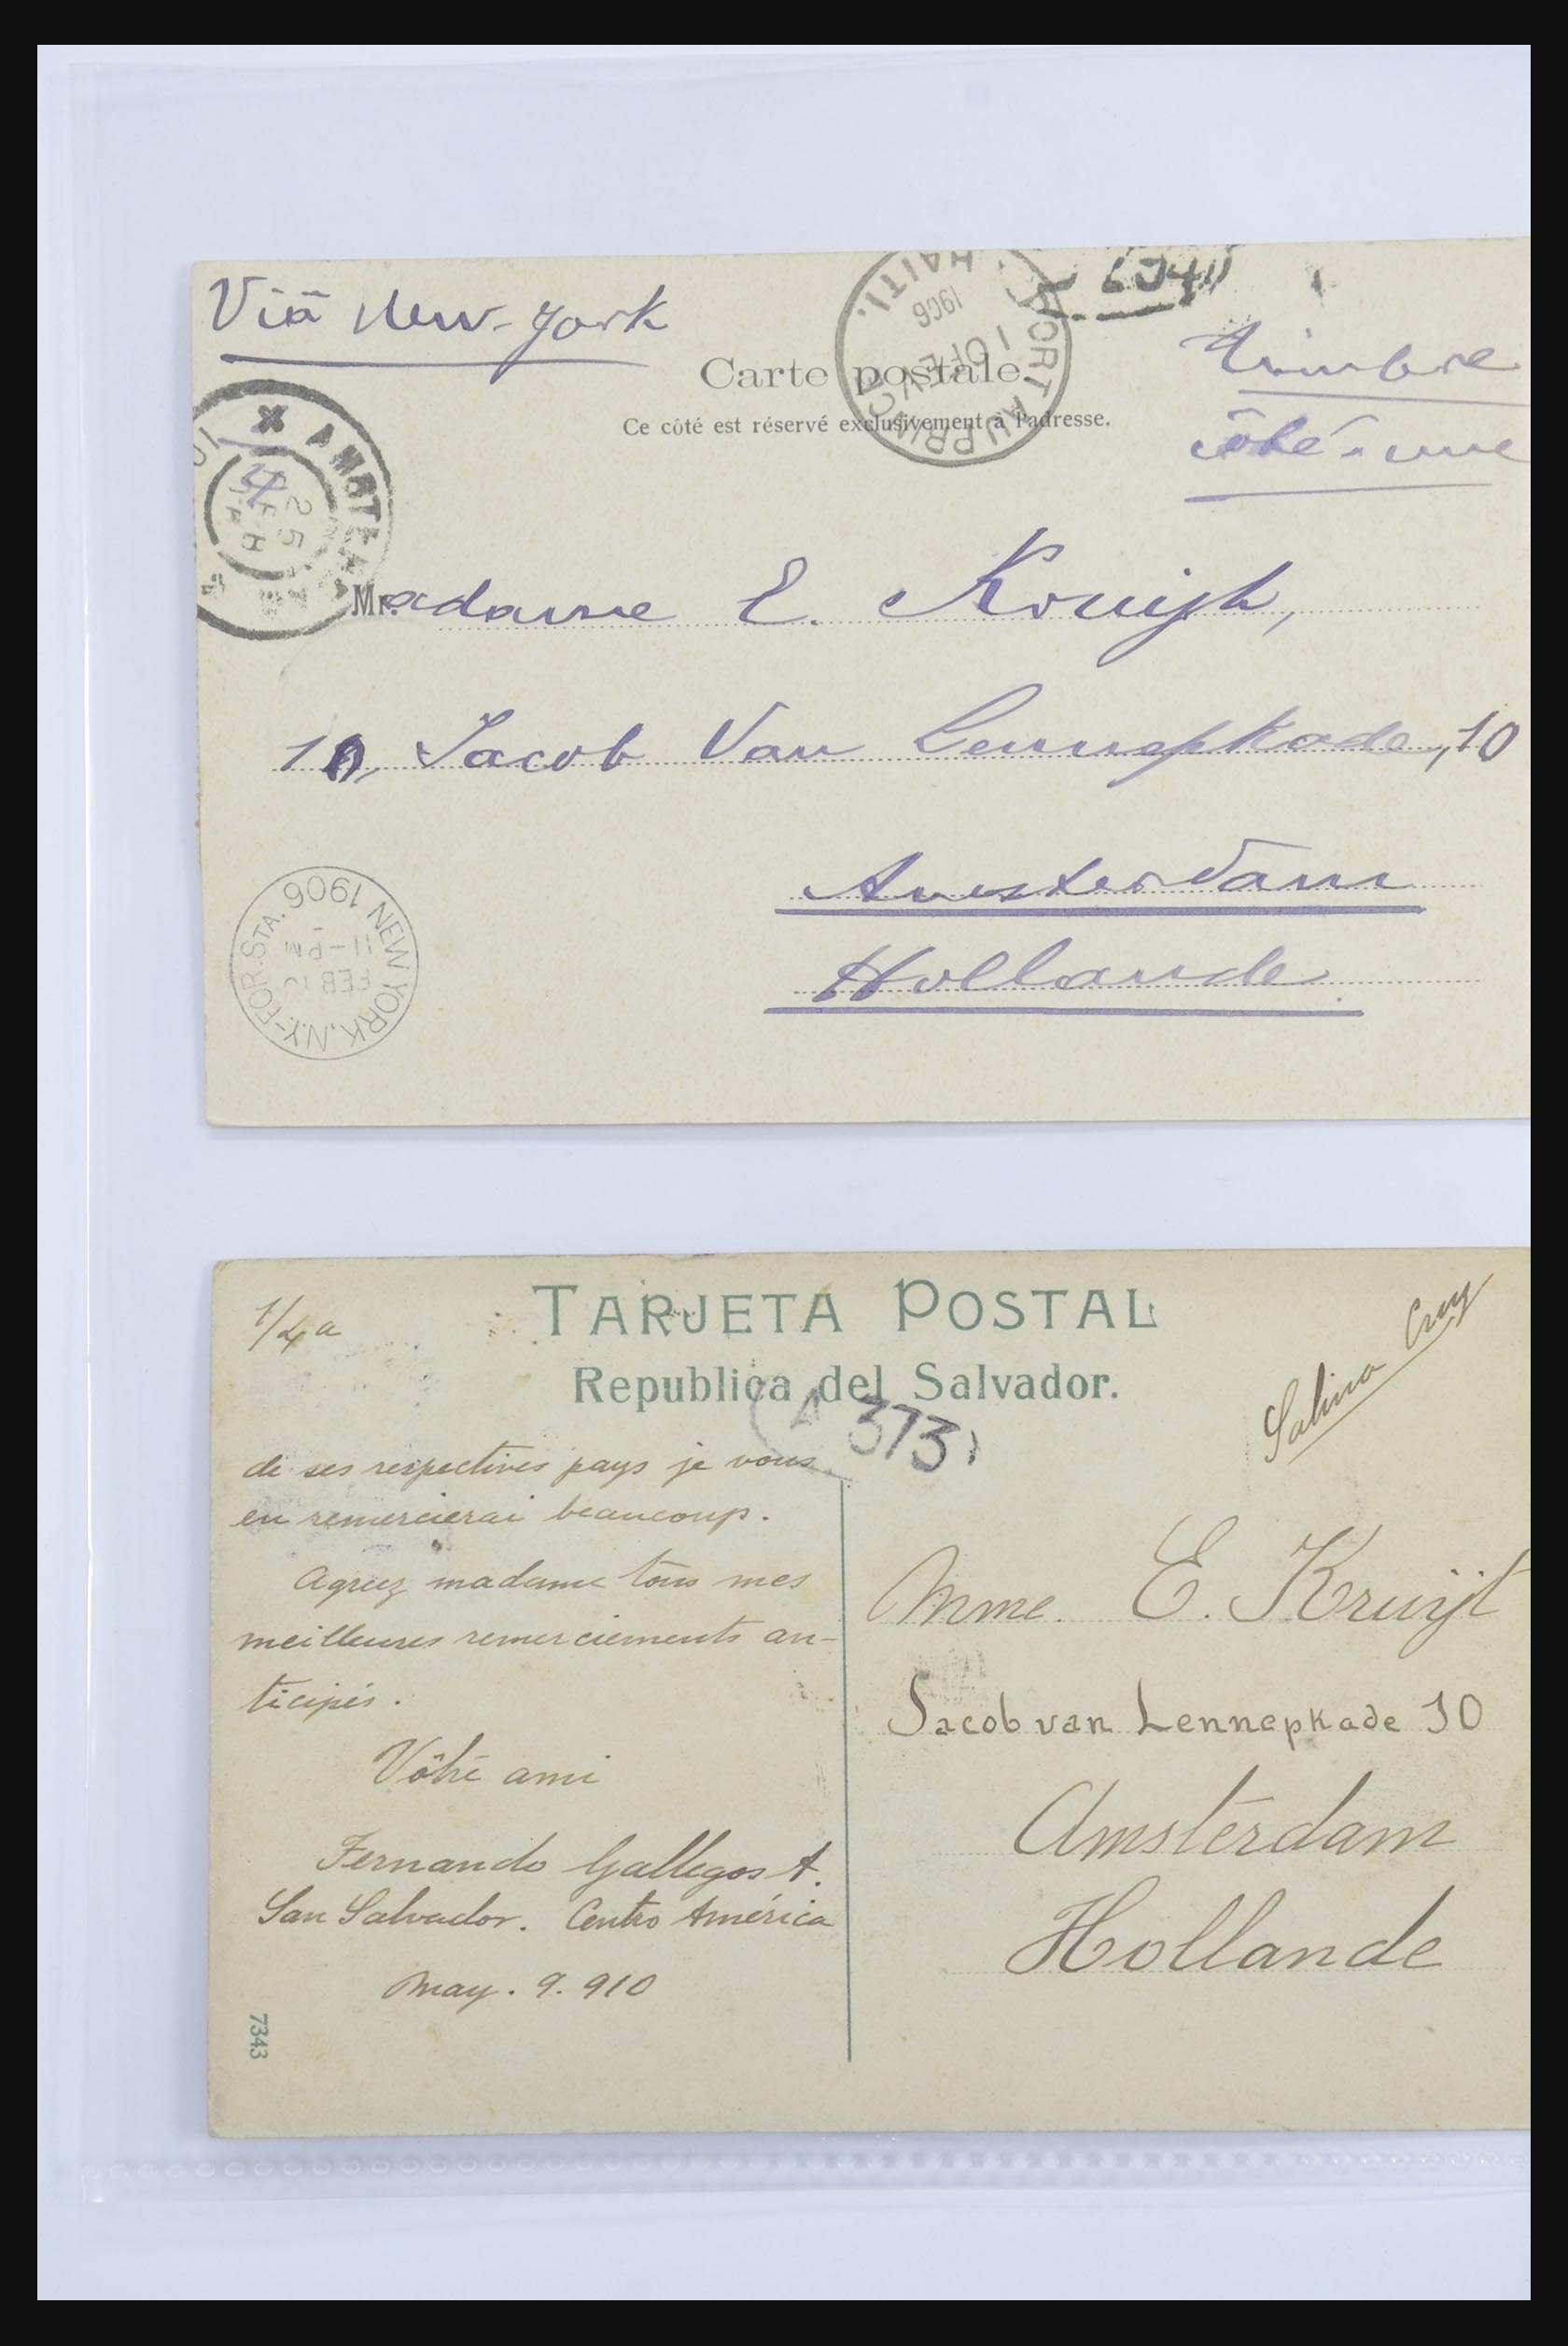 Viâ New-York
Carte postale
Ce côté est réservé exclusivement à l'adresse.
Timbre
côté-vue
PORT AU PRINCE
HAITI.
1906
AMSTERDAM
25 FEB
Mr. adame E. Kruijt,
10, Jacob Van Lennepkade, 10
Amsterdam
Hollande
NEW YORK, N.Y.-FOR. STA. 1906
11-PM
FEB
TARJETA POSTAL
Republica del Salvador.
1/4 a
A 373
Salina Cruz
de ses respectives pays je vous
en remercierai beaucoup.
Agreez madame tous mes
meilleures remerciements an-
ticipés.
Vôtre ami
Fernando Gallegos A.
San Salvador. Centro América
May. 9. 910
7343
Mme. E. Kruijt
Jacob van Lennepkade 10
Amsterdam
Hollande